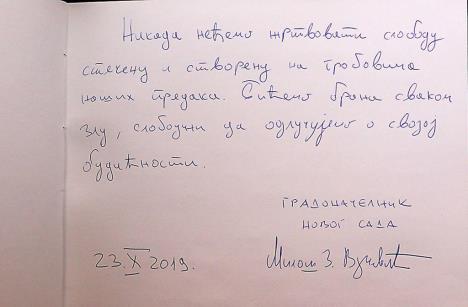 Никада нећемо жртвовати слободу
стечену и створену на гробовима
наших предака. Бићемо брана сваком
злу, слободни да одлучујемо о својој
будућности.
ГРАДОНАЧЕЛНИК
НОВОГ САДА
23. X 2019.
Милош З. Вучевић